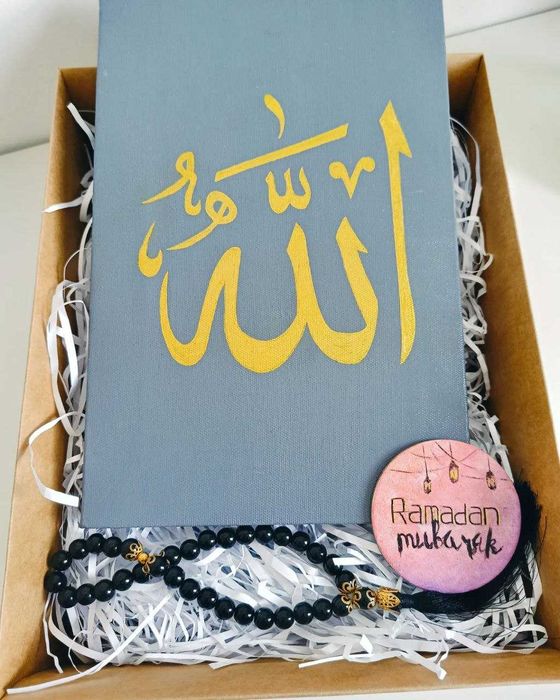 الله
Ramadan
mubarak